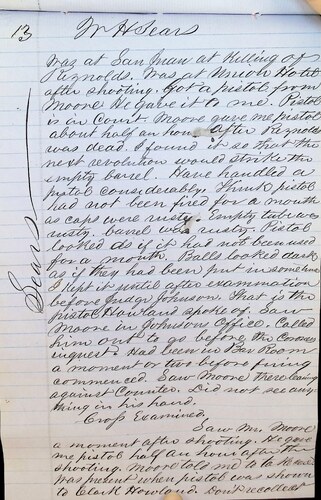 13 W H Sears
Was at San Juan at Killing of
Reynolds. Was at Union Hotel
after shooting. Got a pistol from
Moore He gave it to me. Pistol
is in Court. Moore gave me pistol
about half an hour after Reynolds
was dead. I found it so that the
next revolution would strike the
empty barrel. Have handled a
pistol considerably. Think pistol
had not been fired for a month
as caps were rusty. Empty tube was
rusty. barrel was rusty. Pistol
looked as if it had not been used
for a month. Balls looked dark
as if they had been put in some time
I kept it until after examination
before Judge Johnson. That is the
pistol Howland spoke of. Saw
Moore in Johnsons Office. Called
him out to go before the Coroners
inquest. Had been in Bar Room
a moment or two before firing
commenced. Saw Moore there leaning
against Counter. Did not see any
thing in his hand.
Cross Examined,
Saw Mr. Moore
a moment after shooting. He gave
me pistol half an hour after the
shooting. Moore told me to take it
was present when pistol was shown
to Clark Howland. Dont recollect
Sears